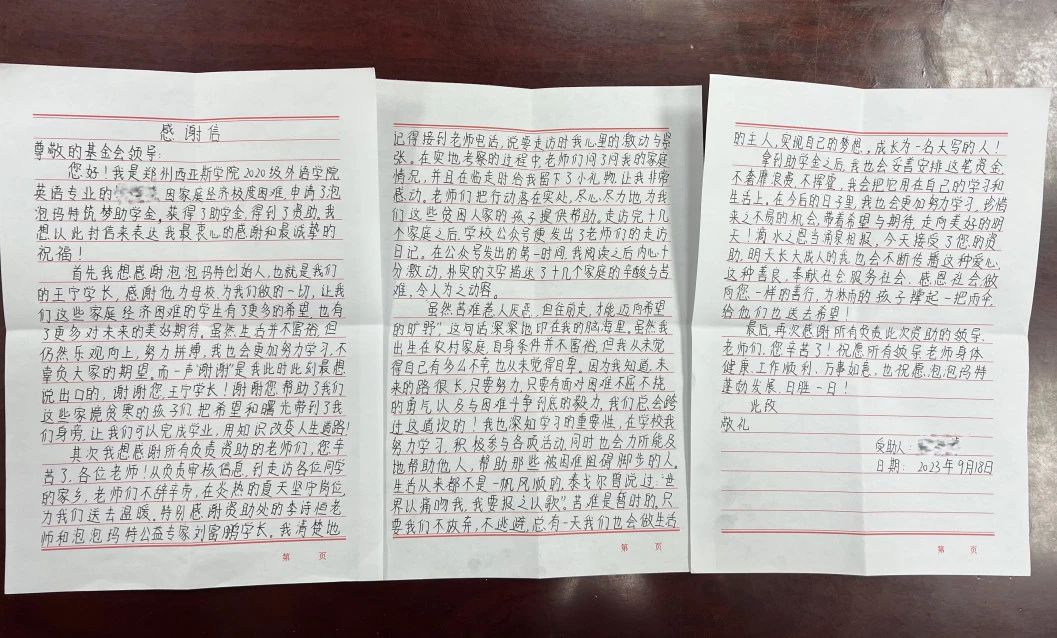 感谢信
尊敬的基金会领导:
您好!我是郑州西亚斯学院2020级外语学院
英语专业的 因家庭经济极度困难,申请了泡
泡玛特筑梦助学金。获得了助学金,得到了资助,我
想从此封信来表达我最衷心的感谢和最诚挚的
祝福!
首先我想感谢泡泡玛特创始人,也就是我们
的王宁学长,感谢他为母校,为我们做的一切,让我
们这些家庭经济困难的学生有了更多的希望,也有
了更多对未来的美好期待。虽然生活并不富裕,但
仍然乐观向上,努力拼搏,我也会更加努力学习,不
辜负大家的期望。而一声“谢谢”是我此时此刻最想
说出口的,谢谢您,王宁学长!谢谢您帮助了我们
这些家境贫寒的孩子们,把希望和曙光带到了我
们身旁,让我们可以完成学业,用知识改变人生道路!
其次我想感谢所有负责资助的老师们,您辛
苦了,各位老师!从负责审核信息,到走访各位同学
的家乡,老师们不辞辛劳,在炎热的夏天坚守岗位,
为我们送去温暖。特别感谢资助处的李诗恒老
师和泡泡玛特公益专家刘富鹏学长。我清楚地
第 页
记得接到老师电话,说要走访时我心里的激动与紧
张。在实地考察的过程中,老师们问了问我的家庭
情况,并且在临走时给我留下了小礼物,让我非常
感动。老师们把行动落在实处,尽心尽力地为我
们这些贫困人家的孩子提供帮助。走访完十几
个家庭之后,学校公众号便发出了老师们的走访
日记。在公众号发出的第一时间,我阅读之后内心十
分激动,朴实的文字描述了十几个家庭的辛酸与苦
难,令人为之动容。
虽然苦难惹人厌恶,但往前走,才能迈向希望
的旷野”这句话深深地印在我的脑海里。虽然我
出生在农村家庭,自身条件并不富裕,但我从未觉
得自己有多么不幸,也从未觉得自卑。因为我知道,未
来的路很长,只要努力,只要有面对困难不屈不挠
的勇气,以及与困难斗争到底的毅力,我们总会跨
过这道坎的!我也深知学习的重要性,在学校我
努力学习,积极参与各项活动,同时也会力所能及
地帮助他人,帮助那些被困难阻碍脚步的人。
生活从来都不是一帆风顺的,泰戈尔曾说过:“世
界以痛吻我,我要报之以歌”。苦难是暂时的,只
要我们不放弃,不逃避,总有一天我们也会做生活
第 页
的主人,实现自己的梦想,成长为一名大写的人!
拿到助学金之后,我也会妥善安排这笔资金,
不奢靡浪费,不挥霍,我会把它用在自己的学习和
生活上。在今后的日子里,我也会更加努力学习,珍惜
来之不易的机会,带着希望与期待,走向美好的明
天!滴水之恩当涌泉相报,今天接受了您的资
助,明天长大成人的我也会不断传播这种爱心,
这种善良,奉献社会,服务社会,感恩社会,做
向您一样的善行,为淋雨的孩子撑起一把雨伞,
给他们也送去希望!
最后,再次感谢所有负责此次资助的领导,
老师们,您辛苦了!祝愿所有领导老师身体
健康,工作顺利,万事如意,也祝愿泡泡玛特
蓬勃发展,日胜一日!
此致
敬礼
受助人:
日期:2023年9月18日
第 页